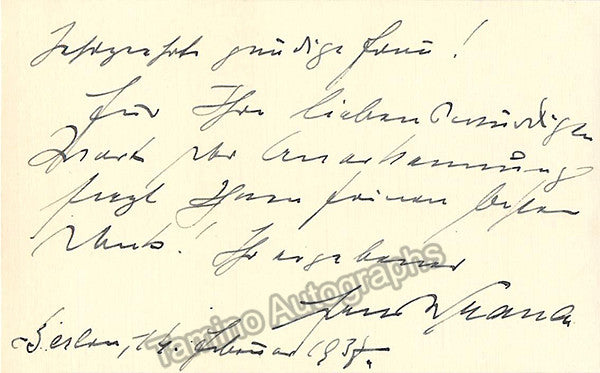 Sehr geehrte gnädige Frau!
Für Ihre liebenswürdigen
Worte der Anerkennung
sagt Ihnen seinen besten
Dank! Ihr ergebener
Berlin, 14. Februar 193
Tamino Autographs